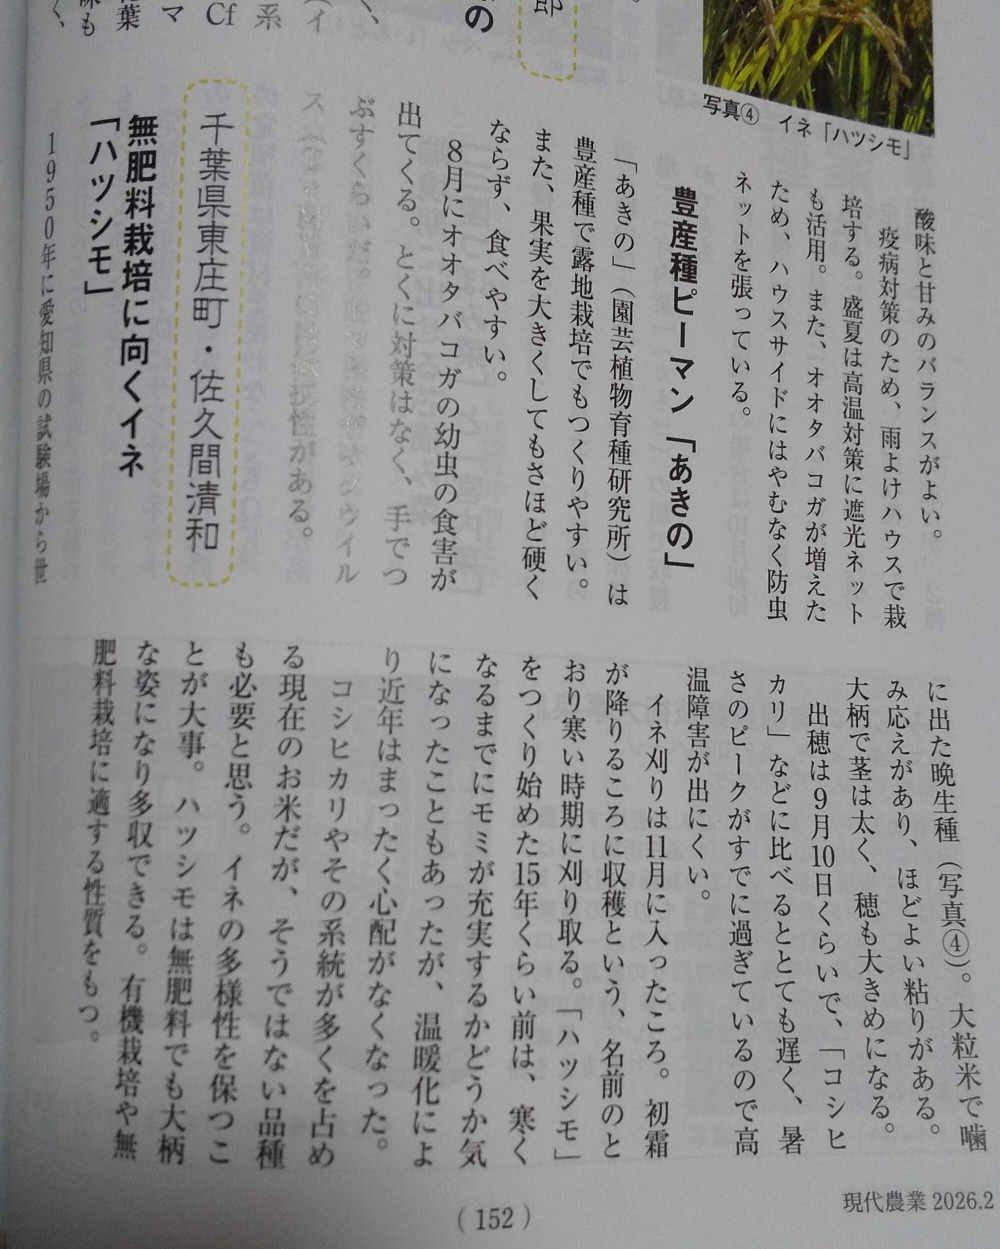 写真④ イネ「ハツシモ」
酸味と甘みのバランスがよい。
疫病対策のため、雨よけハウスで栽
培する。盛夏は高温対策に遮光ネット
も活用。また、オオタバコガが増えた
ため、ハウスサイドにはやむなく防虫
ネットを張っている。
豊産種ピーマン「あきの」
「あきの」(園芸植物育種研究所)は
豊産種で露地栽培でもつくりやすい。
また、果実を大きくしてもさほど硬く
ならず、食べやすい。
8月にオオタバコガの幼虫の食害が
出てくる。とくに対策はなく、手でつ
ぶすくらいだ。ウイル
ス性がある。
千葉県東庄町・佐久間清和
無肥料栽培に向くイネ
「ハツシモ」
1950年に愛知県の試験場から世
に出た晩生種(写真④)。大粒米で噛
み応えがあり、ほどよい粘りがある。
大柄で茎は太く、穂も大きめになる。
出穂は9月10日くらいで、「コシヒ
カリ」などに比べるととても遅く、暑
さのピークがすでに過ぎているので高
温障害が出にくい。
イネ刈りは11月に入ったころ。初霜
が降りるころに収穫という、名前のと
おり寒い時期に刈り取る。「ハツシモ」
をつくり始めた15年くらい前は、寒く
なるまでにモミが充実するかどうか気
になったこともあったが、温暖化によ
り近年はまったく心配がなくなった。
コシヒカリやその系統が多くを占め
る現在のお米だが、そうではない品種
も必要と思う。イネの多様性を保つこ
とが大事。ハツシモは無肥料でも大柄
な姿になり多収できる。有機栽培や無
肥料栽培に適する性質をもつ。
(152)
現代農業 2026.2